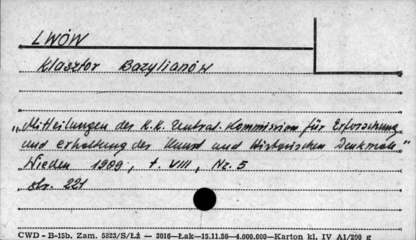 LWÓW
Klasztor Bazylianów
„Mitteilungen der K.K. Zentral-Kommission für Erforschung
und erhaltung der Kunst und Historischen Denkmale"
Wieden 1909, t. VIII, Nr. 5
str. 221
CWD - B-15b. Zam. 5823/S/Łż — 3016—Łak—15.11.56—4.000.000—Karton kl. IV A1/200 g